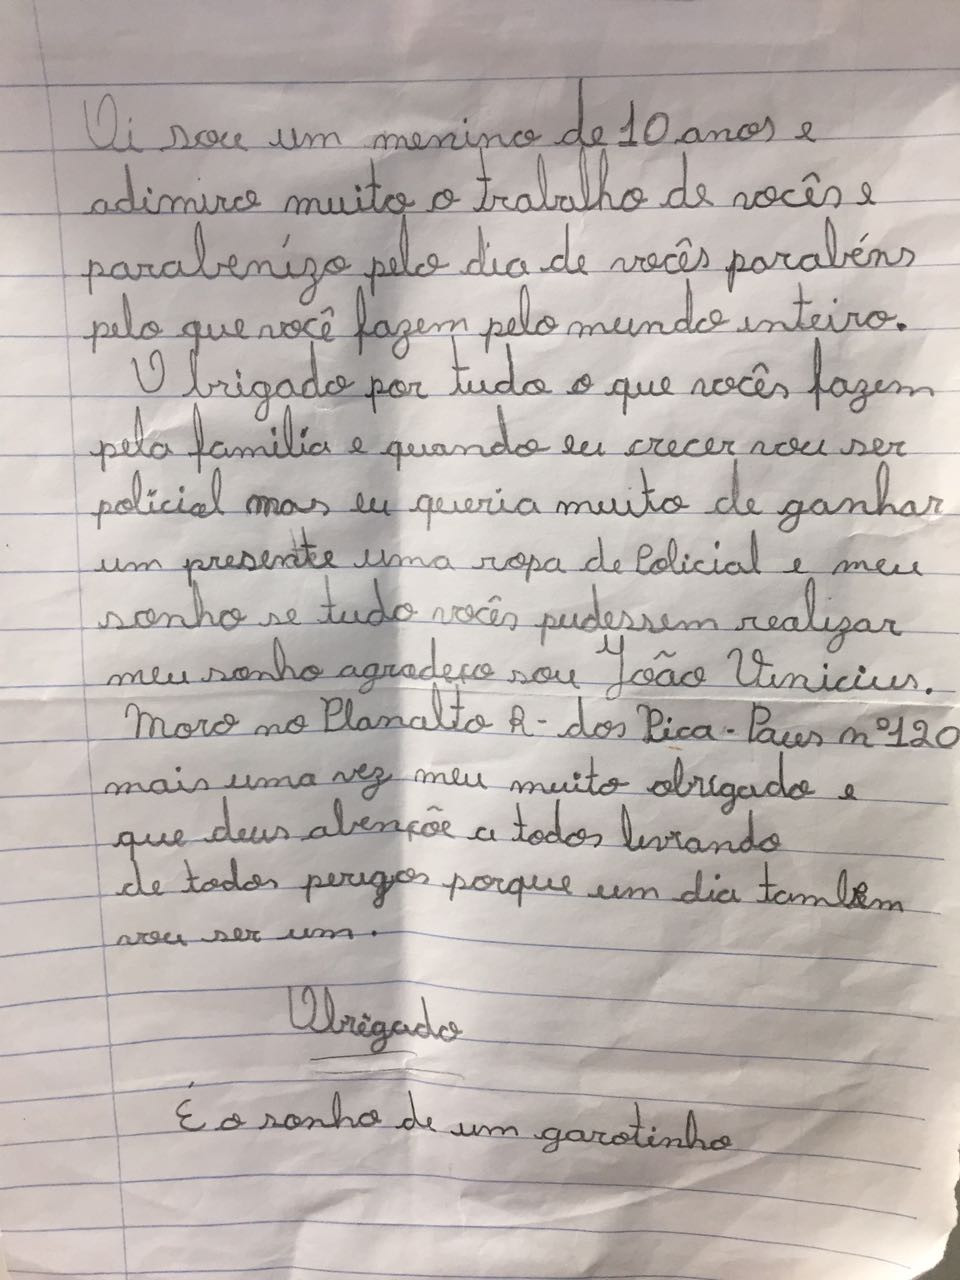 Oi sou um menino de 10 anos e
adimiro muito o trabalho de vocês e
parabenizo pelo dia de vocês parabéns
pelo que você fazem pelo mundo inteiro.
Obrigado por tudo o que vocês fazem
pela familia e quando eu crecer vou ser
policial mas eu queria muito de ganhar
um presente uma ropa de Policial e meu
sonho se tudo vocês pudessem realizar
meu sonho agradeço sou João Vinicius.
Moro no Planalto R- dos Pica-Paus nº120
mais uma vez meu muito obrigado e
que deus abençõe a todos livrando
de todos perigos porque um dia também
vou ser um.
Obrigado
É o sonho de um garotinho